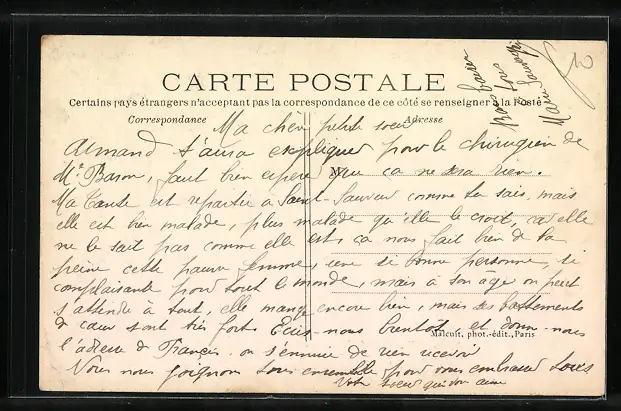 CARTE POSTALE
Certains pays étrangers n'acceptant pas la correspondance de ce côté se renseigner à la Poste
Correspondance
Adresse
Ma chère petite soeur
Armand t'aura expliquer pour le chirurgien de
Mr Baron, faut bien espérer que ça ne sera rien.
Ma Tante est repartie à Saint-Sauveur comme tu sais, mais
elle est bien malade, plus malade qu'elle le croit, car elle
ne le sait pas comme elle est, ça nous fait bien de la
peine cette pauvre femme, une si bonne personne, si
complaisante pour tout le monde, mais à son âge on peut
s'attendre à tout, elle mange encore bien, mais ses battements
de coeur sont très forts. Ecris-nous bientôt et donne-nous
l'adresse de Français on s'ennuie de rien recevoir
Nous nous joignons tous ensemble pour vous embrasser tous
Votre soeur qui vous aime
Malcuit, phot.-édit., Paris
Bons baisers
à tous
10